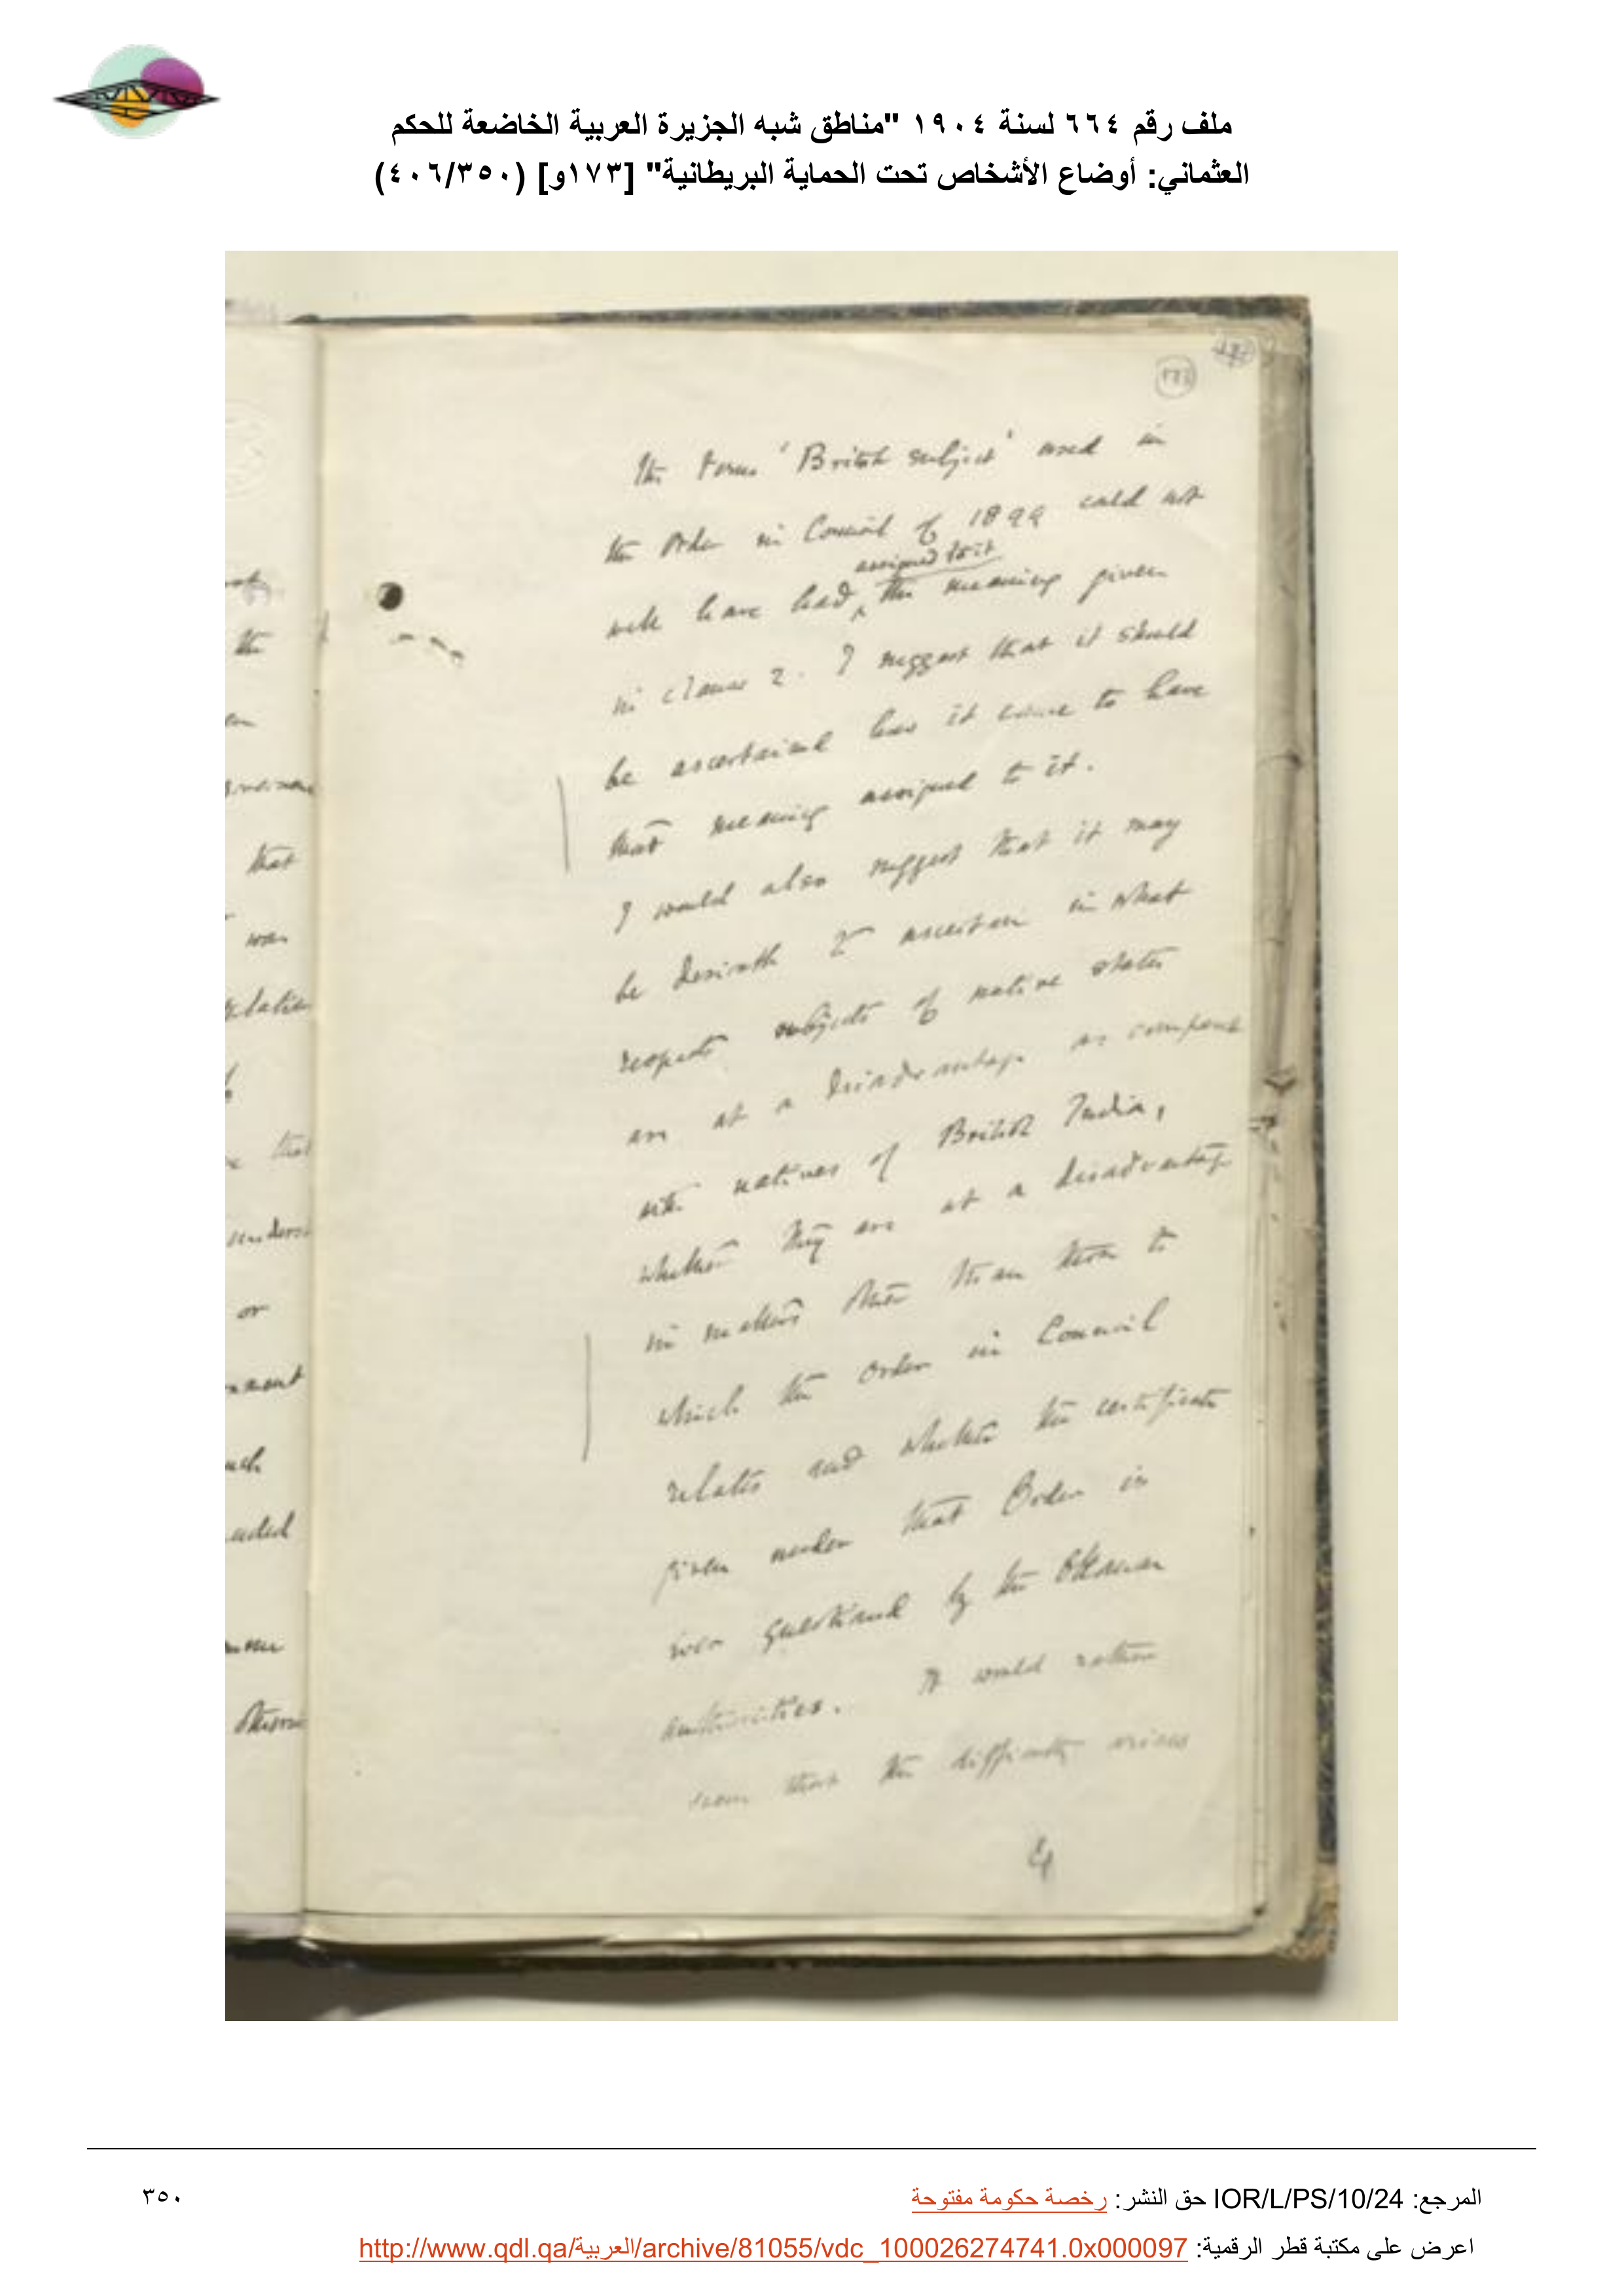 ملف رقم ٦٦٤ لسنة ١٩٠٤ "مناطق شبه الجزيرة العربية الخاضعة للحكم
العثماني: أوضاع الأشخاص تحت الحماية البريطانية" [١٧٣و] (٤٠٦/٣٥٠)
173
The term 'British subject' used in
the Order in Council of 1899 could not
assigned to it
well have had the meaning given
in clause 2. I suggest that it should
be ascertained how it came to have
that meaning assigned to it.
I would also suggest that it may
be desirable to ascertain in what
respects subjects of native states
are at a disadvantage as compared
with natives of British India,
whether they are at a disadvantage
in matters other than those to
which the Order in Council
relates and whether the certificate
given under that Order is
ever questioned by the Ottoman
authorities. It would rather
seem that the difficulty arises
the
that
was
or
المرجع: IOR/L/PS/10/24 حق النشر: رخصة حكومة مفتوحة
٣٥٠
اعرض على مكتبة قطر الرقمية: http://www.qdl.qa/العربية/archive/81055/vdc_100026274741.0x000097